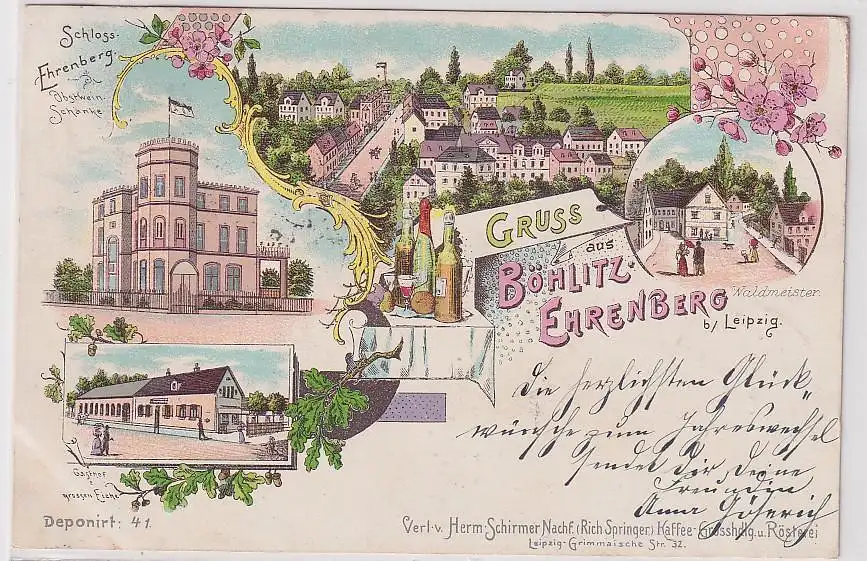 Schloss-
Ehrenberg.
Obstwein-
Schänke
GRUSS
aus
BÖHLITZ-
EHRENBERG
b/ Leipzig.
Waldmeister.
Die herzlichsten Glück-
wünsche zum Jahreswechsel
sendet Dir Deine
Freundin
Anna
Gasthof
z.
grossen Eiche
Deponirt: 41.
Verl. v. Herm. Schirmer Nachf. (Rich Springer) Kaffee-Grosshdlg. u. Rösterei
Leipzig-Grimmaische Str. 32.